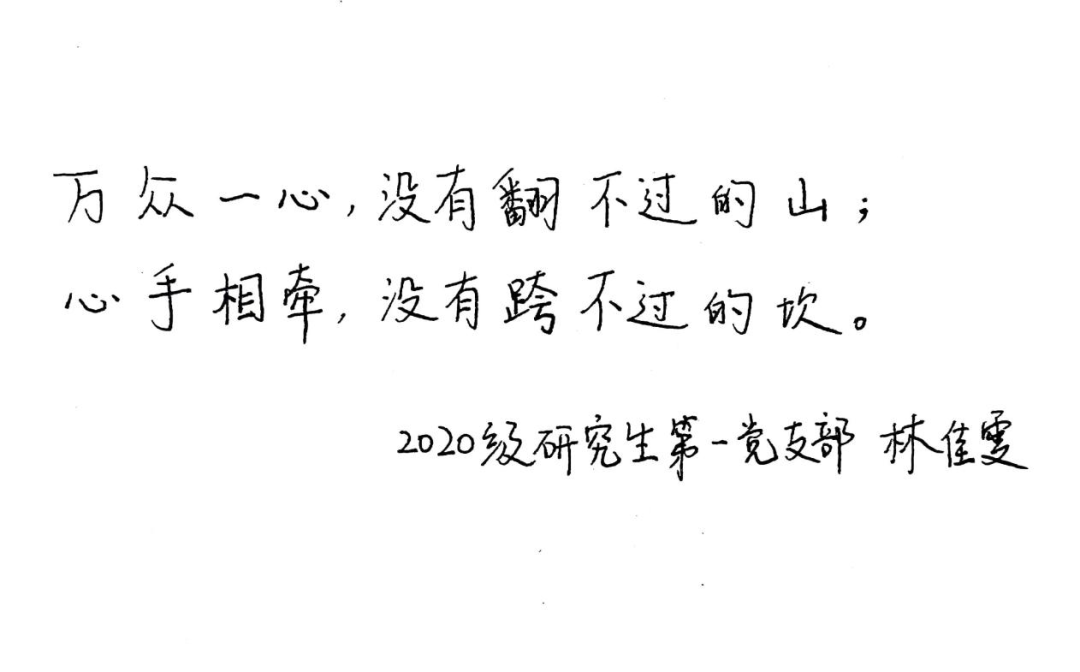 万众一心，没有翻不过的山；
心手相牵，没有跨不过的坎。
2020级研究生第一党支部 林佳雯